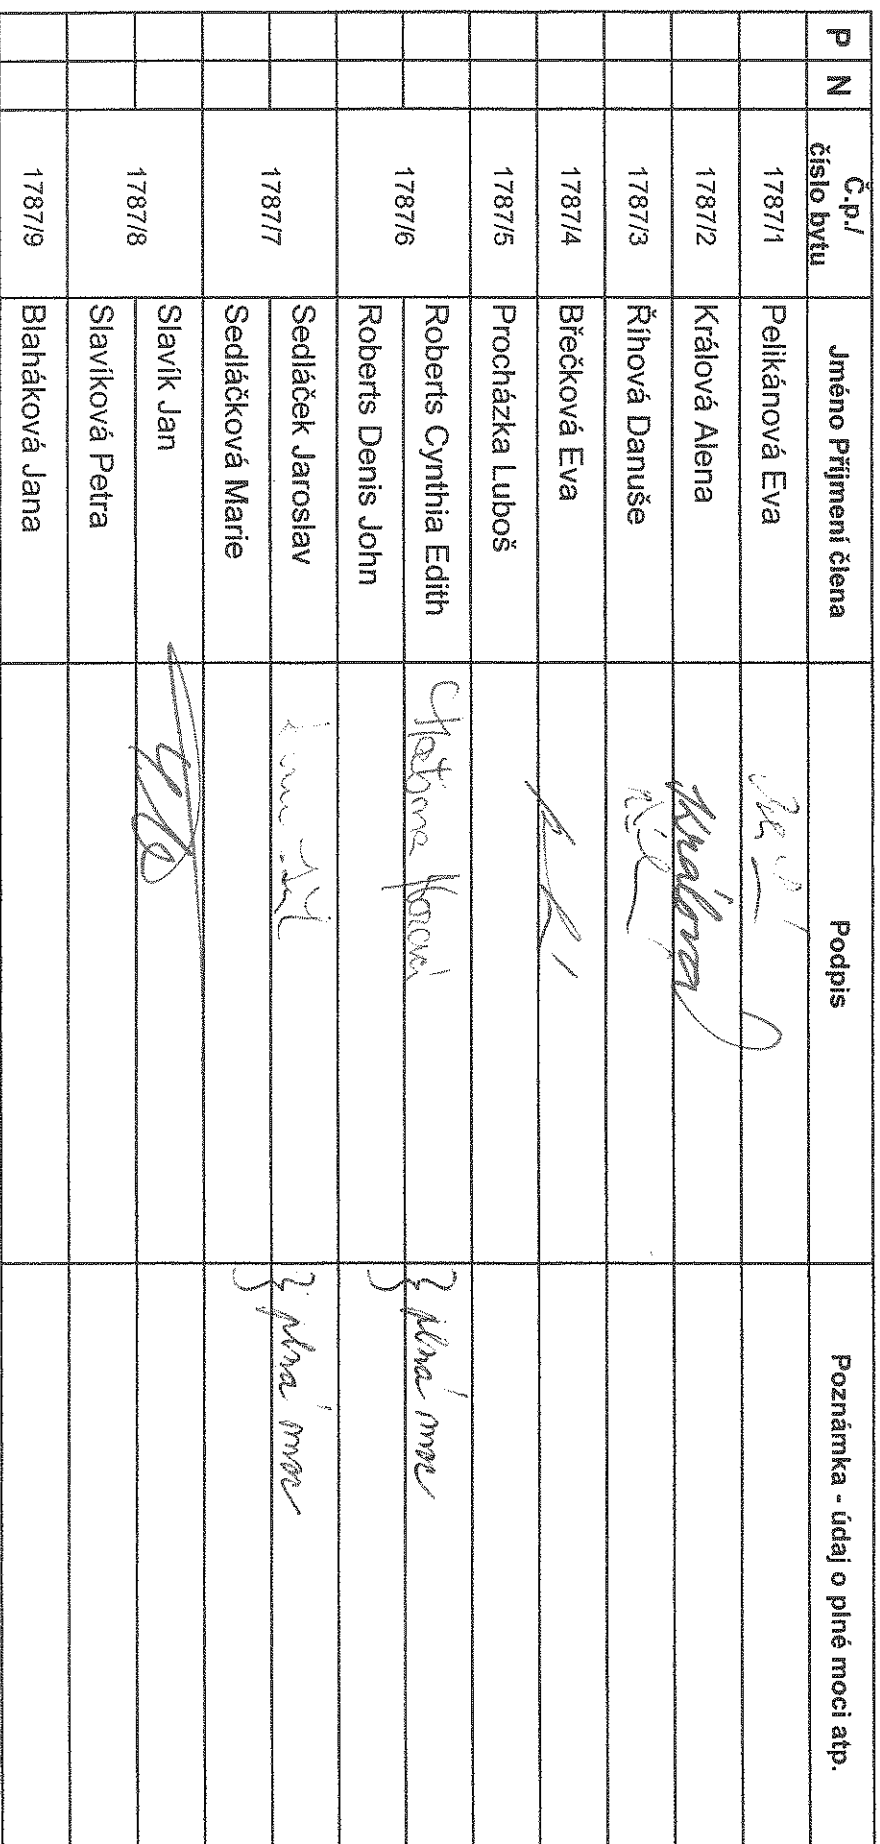 P N Č.p./ číslo bytu Jméno Příjmení člena Podpis Poznámka - údaj o plné moci atp.
1787/1 Pelikánová Eva
1787/2 Králová Alena Králová
1787/3 Říhová Danuše
1787/4 Břečková Eva
1787/5 Procházka Luboš
1787/6 Roberts Cynthia Edith } plná moc
Roberts Denis John
1787/7 Sedláček Jaroslav } plná moc
Sedláčková Marie
1787/8 Slavík Jan
Slavíková Petra
1787/9 Blaháková Jana